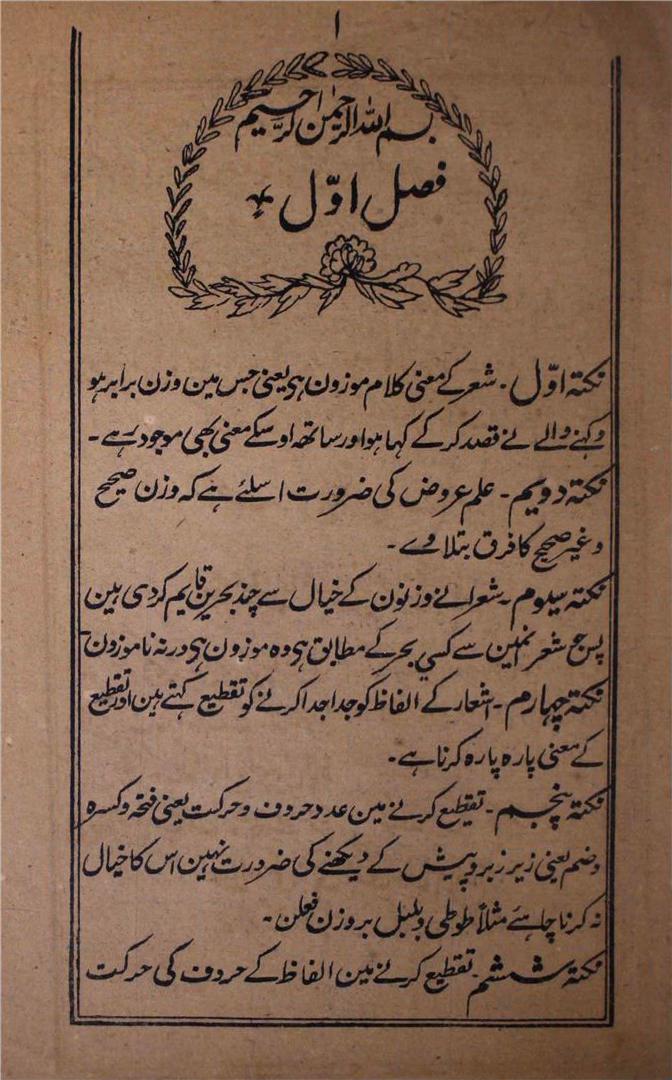 ۱
بسم اللہ الرحمٰن الرحیم
فصل اوّل
نکتۂ اوّل ۔ شعر کے معنی کلام موزون ہی یعنی جس مین وزن برابر ہو
و کہنے والے نے قصد کر کے کہا ہو اور ساتھہ اوسکے معنی بھی موجود رہے ۔
نکتۂ دویم ۔ علم عروض کی ضرورت اسلئے ہے کہ وزن صحیح
و غیر صحیح کا فرق بتلاوے ۔
نکتۂ سیوم ۔ شعرا نے وزنون کے خیال سے چند بحرین قایم کر دی ہین
پس جو شعر انمین سے کسی بحر کے مطابق ہی وہ موزون ہی ورنہ ناموزون
نکتۂ چہارم ۔ اشعار کے الفاظ کو جدا جدا کرنے کو تقطیع کہتے ہین اور تقطیع
کے معنی پارہ پارہ کرنا ہے ۔
نکتۂ پنجم ۔ تقطیع کرنے مین عدد حروف و حرکت یعنی فتحہ و کسرہ
و ضم یعنی زیر زبر و پیش کے دیکھنے کی ضرورت نہین اس کا خیال
نہ کرنا چاہئے مثلاً طوطی و بلبل بر وزن فعلن ۔
نکتۂ ششم ۔ تقطیع کرنے مین الفاظ کے حروف کی حرکت